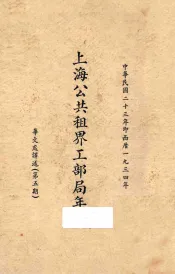 中華民國二十三年即西曆一九三四年
上海公共租界工部局年
華文處譯述(第五期)